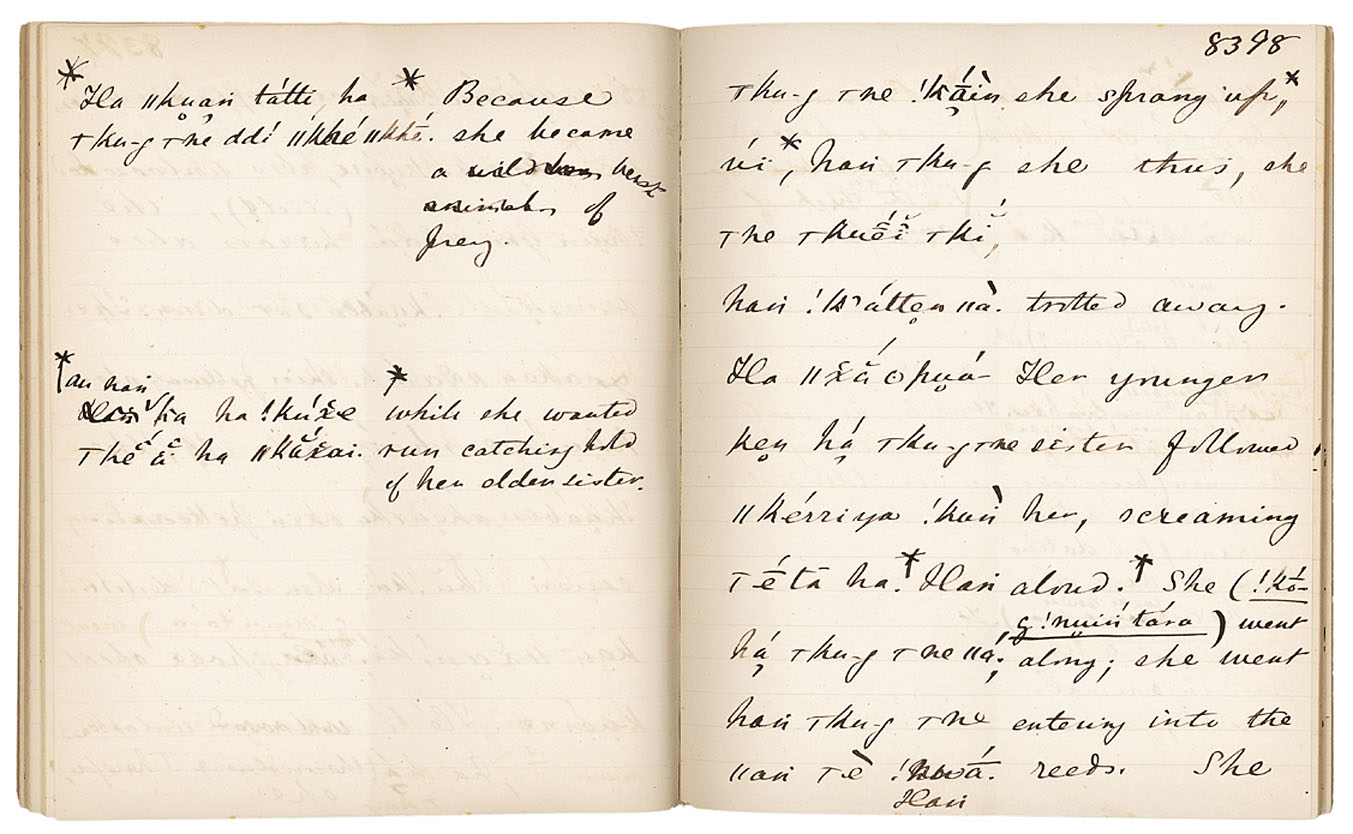 * Ha ǁku̥a̤ṅ tátti, ha * Because
ꞇku-g ꞇne ddí ǁkhé ǁkhé. she became
a wild beast
of
prey.
* au haṅ *
ka ha !kúx̆e while she wanted
ꞇhĕ́ ắ ha ǁkăx̆ai. run catching hold
of her elder sister.
8398
ꞇku-g ꞇne !kā́ĭṅ she sprang up,*
úï*, haṅ ꞇku-g she thus, she
ꞇne ꞇkuĕ́ĭ ꞇkĭ,
haṅ !k'átten̥ ǁà. trotted away.
Ha ǁx̆ắ ʘpu̥á- Her younger
ken̥ há̤ ꞇku-g ꞇne sister followed
ǁkérriya !kùṅ her, screaming
ꞇḗtā ha.† Haṅ aloud.† She (!kṓ-
g!nuiṅ́tára) went
há̤ ꞇku-g ꞇne ǁa̤; along; she went
haṅ ꞇku-g ꞇne entering into the
ǁaṅ ꞇè !kwā́. reeds. She
Haṅ